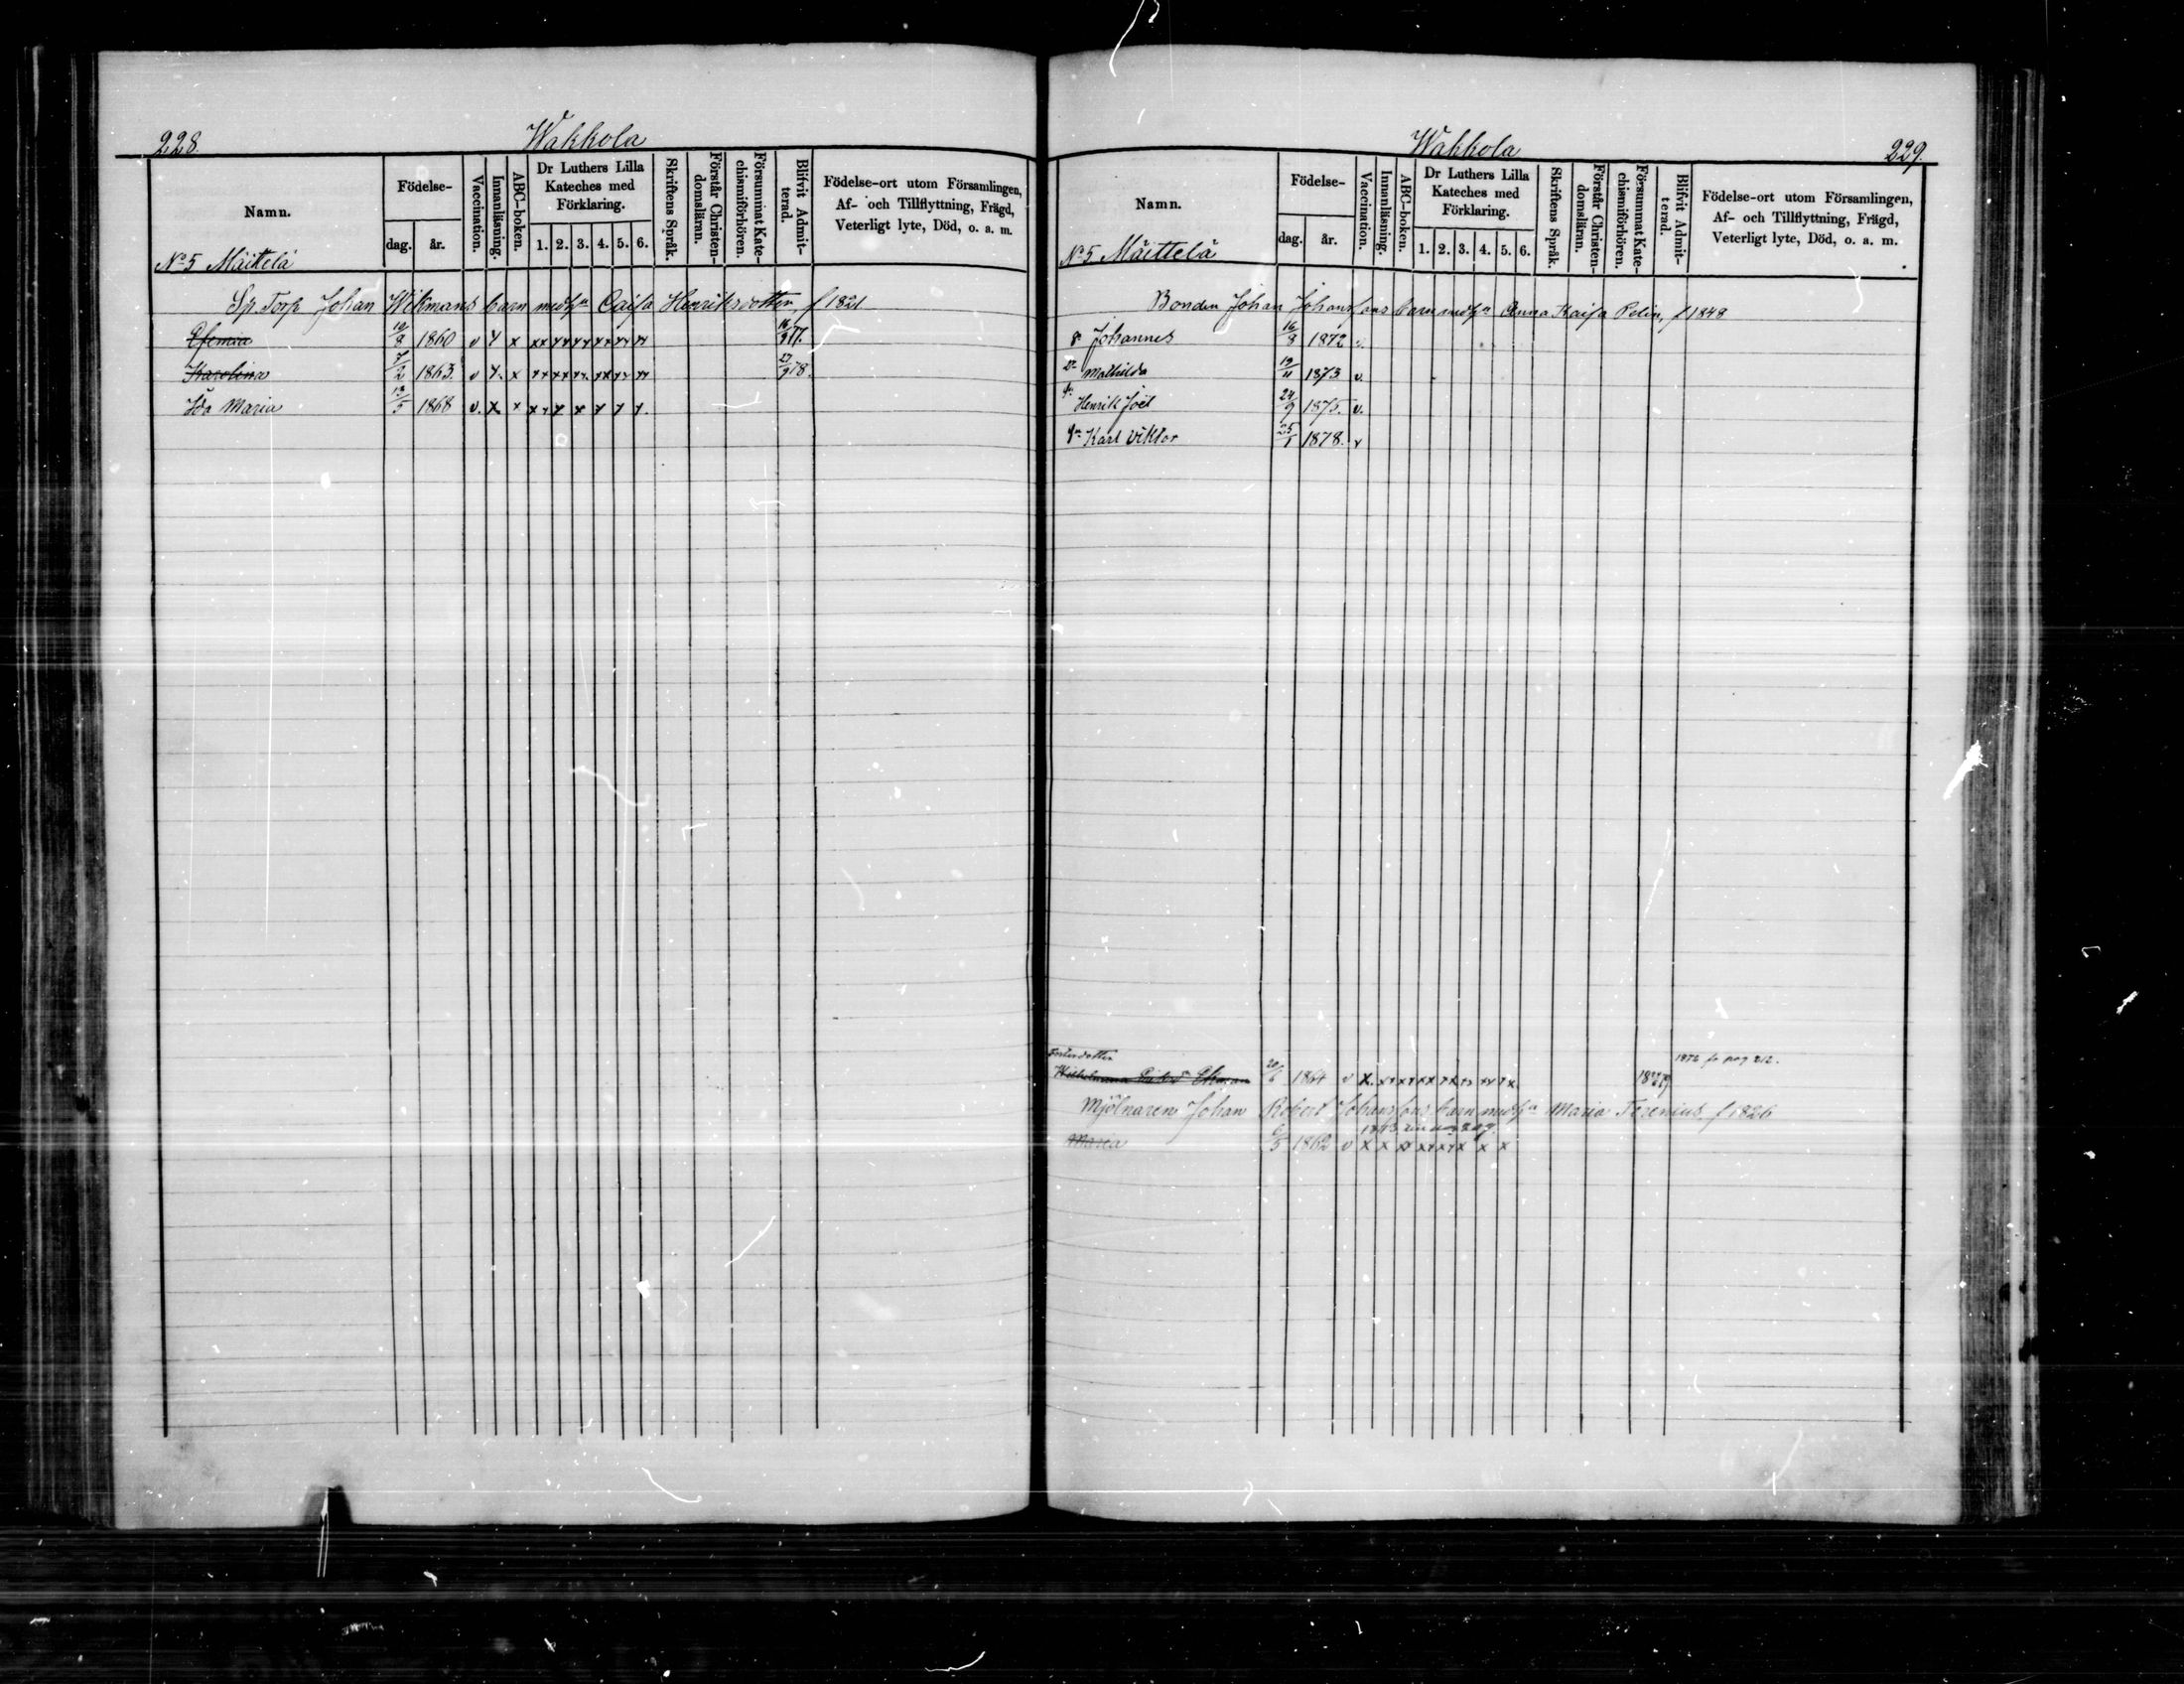 228. Wakkola
Namn. Födelse- dag. år. Vaccination. Innanläsning. ABC-boken. Dr Luthers Lilla Kateches med Förklaring. 1. 2. 3. 4. 5. 6. Skriftens Språk. Förstår Christendomsläran. Försummat Katechismiförhören. Blifvit Admitterad. Födelse-ort utom Församlingen, Af- och Tillflyttning, Frägd, Veterligt lyte, Död, o. a. m.
No 5 Mäittelä
Sp. Torp Johan Wikmans barn med h:u Caisa Henriksdotter, f 1821
Efemia 10/8 1860 v
Karolina 7/2 1863. v
Ida Maria 13/5 1868 v.
Wakkola 229.
Namn. Födelse- dag. år. Vaccination. Innanläsning. ABC-boken. Dr Luthers Lilla Kateches med Förklaring. 1. 2. 3. 4. 5. 6. Skriftens Språk. Förstår Christendomsläran. Försummat Katechismiförhören. Blifvit Admitterad. Födelse-ort utom Församlingen, Af- och Tillflyttning, Frägd, Veterligt lyte, Död, o. a. m.
No 5 Mäittelä
Bonden Johan Johanssons barn med h:u Anna Kaisa Polin, f 1848
Johannes 16/8 1872 v.
Mathilda 19/11 1873 v.
Henrik Joel 24/9 1875. v.
Karl Viktor 25/1 1878. v
Fosterdotter 1872 fr pag 212.
Wilhelmina Ekman 20/6 1864 v
Mjölnaren Johan Robert Johanssons barn med h:u Maria Terenius f 1826
Maria 6/5 1862 v